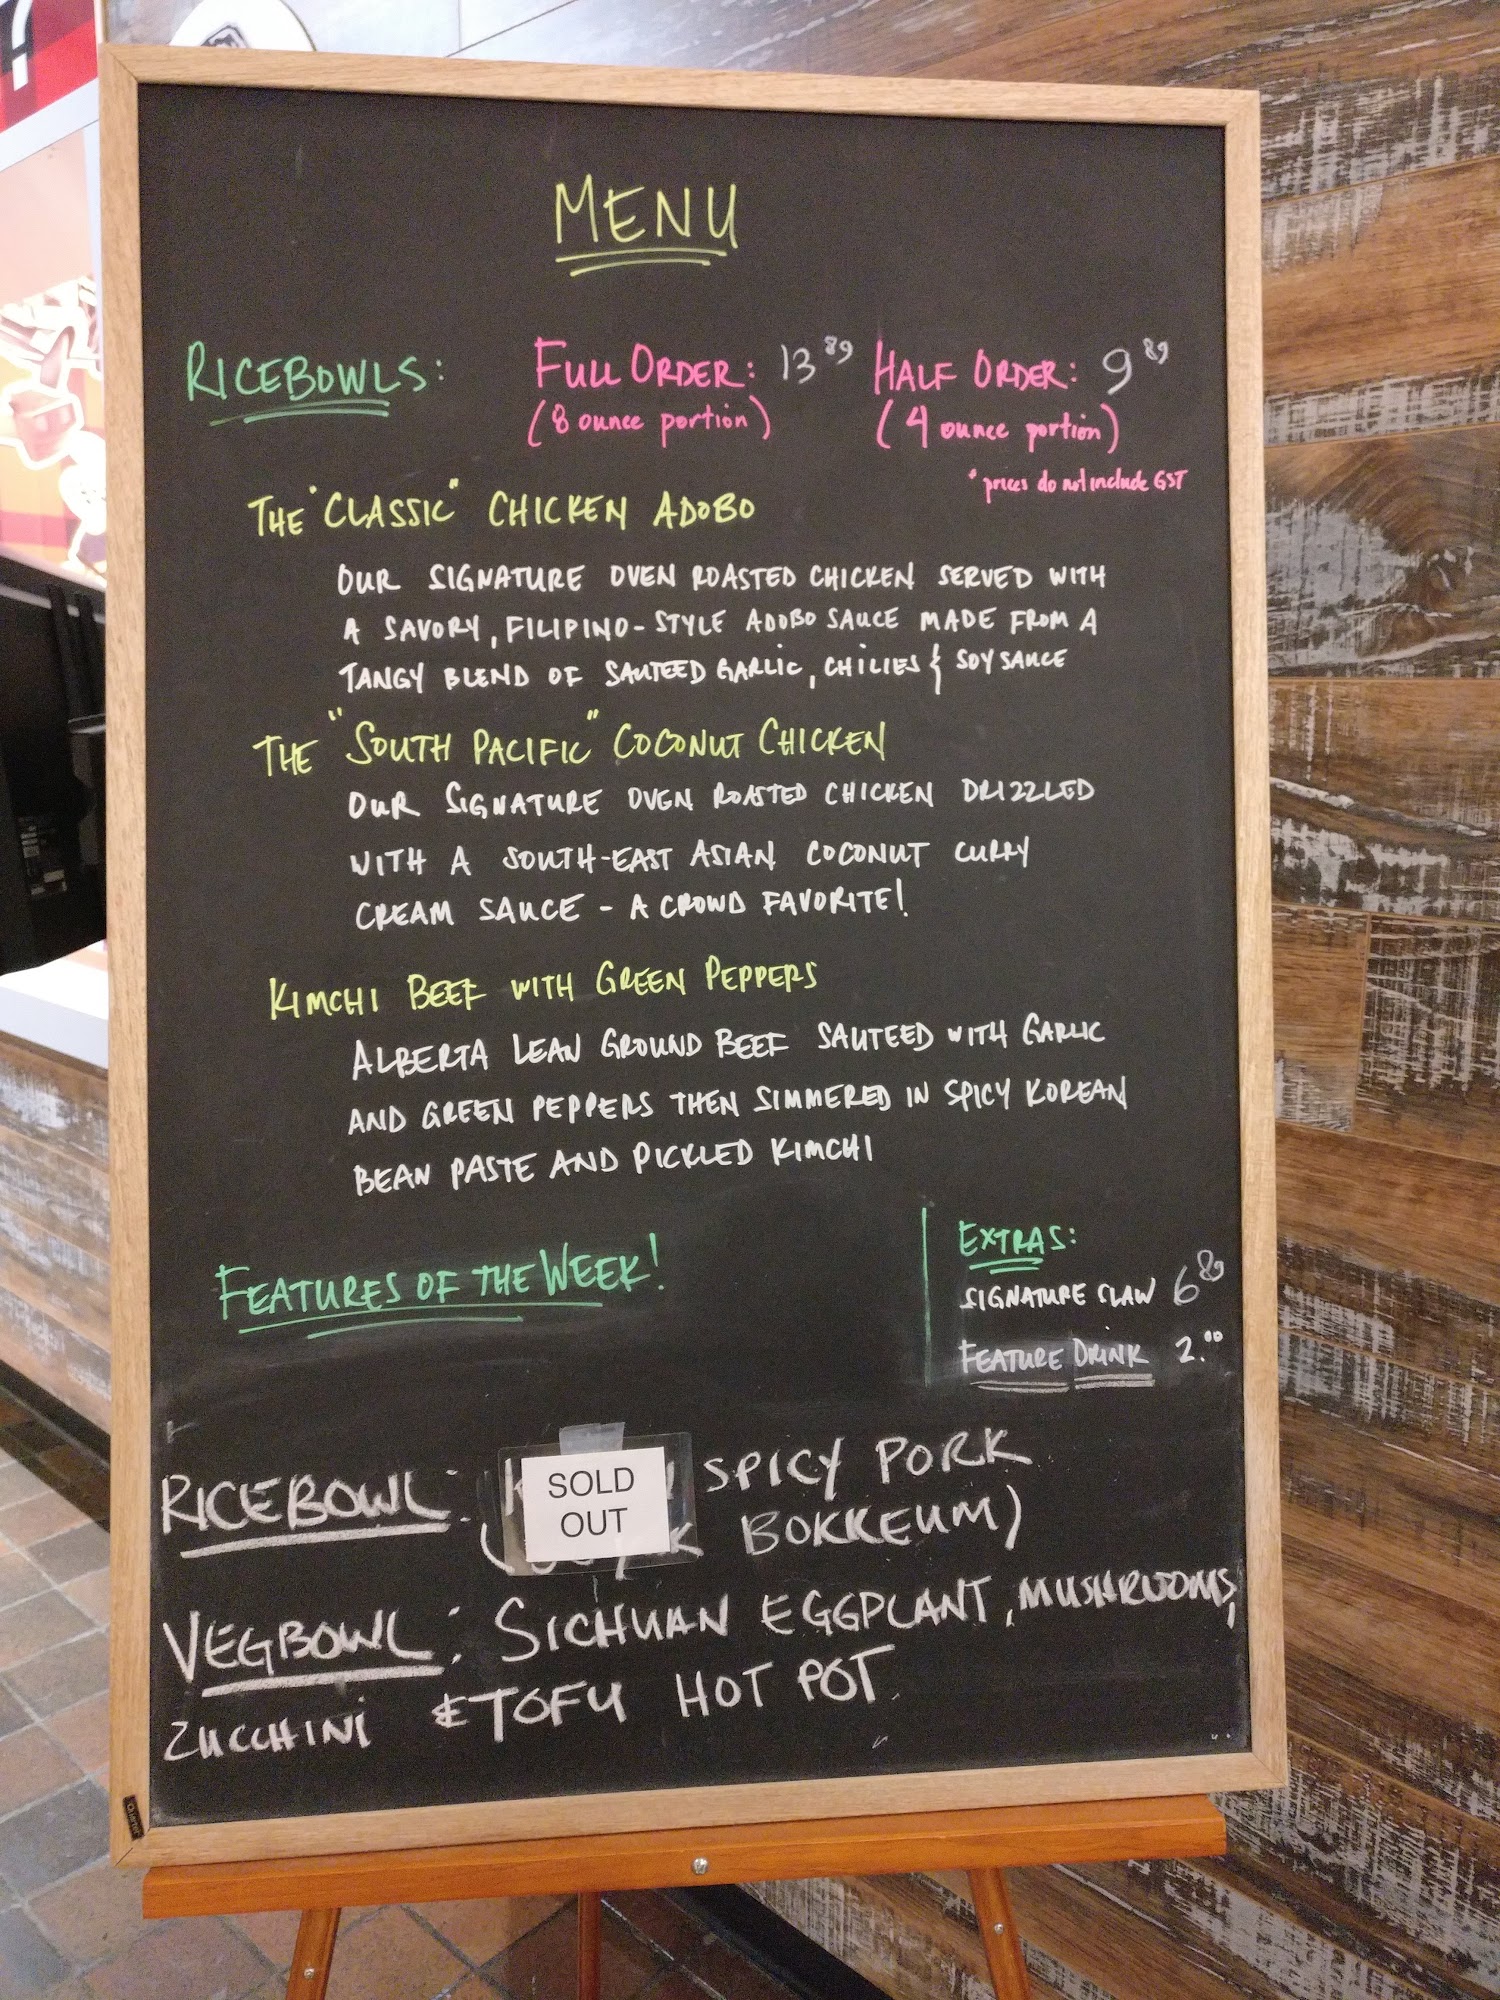 MENU
RICEBOWLS: FULL ORDER: 13 89 HALF ORDER: 9 89
(8 ounce portion) (4 ounce portion)
* prices do not include GST
THE "CLASSIC" CHICKEN ADOBO
OUR SIGNATURE OVEN ROASTED CHICKEN SERVED WITH
A SAVORY, FILIPINO-STYLE ADOBO SAUCE MADE FROM A
TANGY BLEND OF SAUTEED GARLIC, CHILIES & SOY SAUCE
THE "SOUTH PACIFIC" COCONUT CHICKEN
OUR SIGNATURE OVEN ROASTED CHICKEN DRIZZLED
WITH A SOUTH-EAST ASIAN COCONUT CURRY
CREAM SAUCE - A CROWD FAVORITE!
KIMCHI BEEF WITH GREEN PEPPERS
ALBERTA LEAN GROUND BEEF SAUTEED WITH GARLIC
AND GREEN PEPPERS THEN SIMMERED IN SPICY KOREAN
BEAN PASTE AND PICKLED KIMCHI
FEATURES OF THE WEEK!
EXTRAS:
SIGNATURE SLAW 6 89
FEATURE DRINK 2.00
RICEBOWL: SPICY PORK
BOKKEUM)
SOLD
OUT
VEGBOWL: SICHUAN EGGPLANT, MUSHROOMS,
ZUCCHINI & TOFU HOT POT.